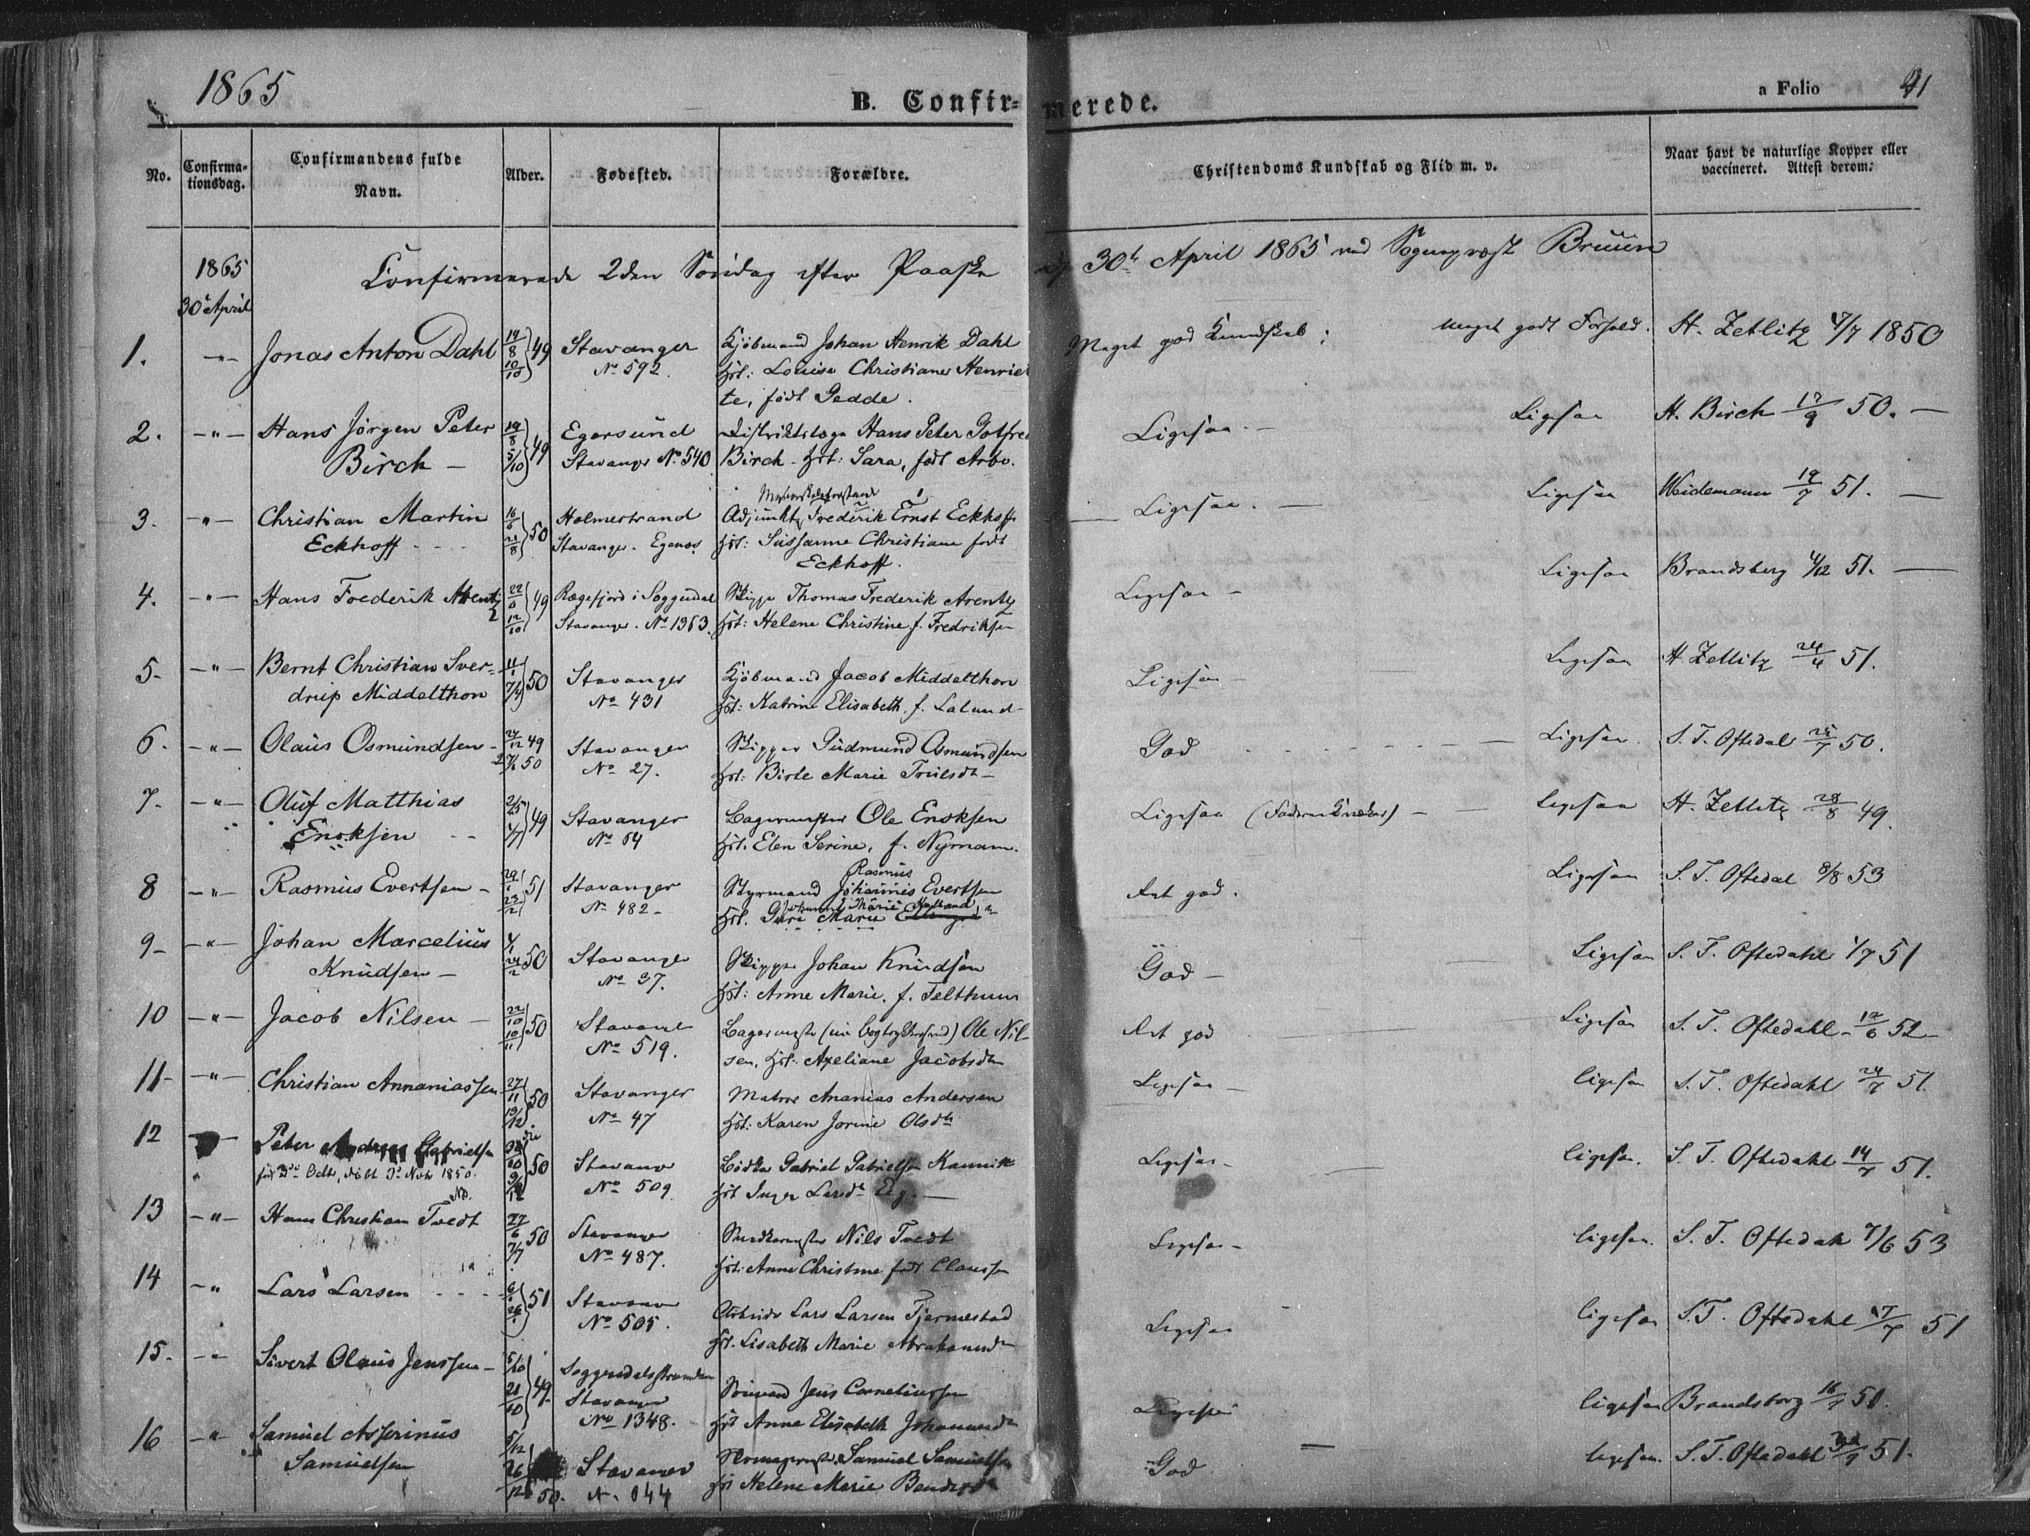 1865
B. Confir-
merede.
a Folio 91
No.
Confirma-
tionsdag.
Confirmandens fulde
Navn.
Alder.
Fødested.
Forældre.
Christendoms Kundskab og Flid m. v.
Naar havt de naturlige Kopper eller
vaccineret. Attest derom:
1865
30 April
Confirmerede 2den Søndag efter Paaske
30te April 1865 ved Sognepræst Bruun
1. -"- Jonas Anton Dahl 14/8 10/10 49 Stavanger Kjöbmand Johan Henrik Dahl
No 592. Hst: Louise Christiane Henriet
te, født Gedde.
Meget god Kundskab; Meget godt Forhold. H. Zetlitz 4/7 1850
2. -"- Hans Jørgen Peter 19/8 5/10 49 Egersund Distriktslæge Hans Peter Gotfred
Birch - Stavanger No 540 Birch - Hst: Sara, født Arbo.
Ligesaa. - Ligesaa H. Birch 17/9 50. -
3. -"- Christian Martin 16/6 21/8 50 Holmestrand Adjunkt Frederik Ernst Eckhoff
Eckhoff Stavanger. Egenæs Hst: Susanne Christiane født
Eckhoff.
Ligesaa. - Ligesaa Weidemann 19/7 51. -
4. -"- Hans Frederik Arentz 12/10 49 Rægefjord i Soggendal Skipper Thomas Frederik Arentz
Stavanger. No 1363. Hst: Helene Christine f. Fredriksen
Ligesaa - Ligesaa Brandsberg 4/12 51. -
5- -"- Bernt Christian Sver- 11/1 7/4 50 Stavanger Kjöbmand Jacob Middelthon
drup Middelthon No 431 Hst: Katrine Elisabeth f. Lalund
Ligesaa - Ligesaa H. Zetlitz 24/4 51.
6. -"- Olaus Osmundsen - 49 50 Stavanger Skipper Gudmund Osmundsen
No 27. Hst: Birte Marie Trulsdt -
God - Ligesaa S. T. Oftedal 25/7 50.
7. -"- Oluf Matthias 49 Stavanger Bagermester Ole Enoksen
Enoksen No 64 Hst. Elen Serine, f. Nyman.
Ligesaa (Faderen Kvæker) - Ligesaa H. Zetlitz 28/8 49.
8 -"- Rasmus Evertsen - 51 Stavanger Styrmand Rasmus Johannes Evertsen
No 482 - Hst. Marie
Ret god. Ligesaa S. T. Oftedal 8/8 53
9- -"- Johan Marcelius 4/1 24/2 50 Stavanger Skipper Johan Knudsen
Knudsen - No 37. Hst: Anne Marie, f. Felthuus
God - Ligesaa S. T. Oftedahl 1/7 51
10 -"- Jacob Nilsen - 22/10 10/11 50 Stavang Ole Nil
No 519. sen, Hst: Axeliane Jacobsdt
Ret god Ligesaa S. T. Oftedahl - 12/6 52 -
11- -"- Christian Annaniassen 27/11 19/12 50 Stavanger Matros Ananias Andersen
No 47 Hst: Karen Jorine Olsdtr
Ligesaa - ligesaa S. T. Oftedahl 24/7 51.
12 Peter Andreas Gabrielsen 50 Stavang Gabriel Gabrielsen Kannik
født Octb, døbt 3 Nov 1850. No 509 Hst Inger Larsdtr
Ligesaa - ligesaa. S. T. Oftedahl 14/7 51.
13 -"- Hans Christian Tvedt 27/6 7/7 50 Stavanger Snedkermester Nils Tvedt
No 487. Hst: Anne Christine født Claussen
Ligesaa - ligesaa. S. T. Oftedahl 7/6 53
14 -"- Lars Larsen 51 Stavang Lars Larsen Tjermestad
No 505. Hst. Lisabeth Marie Abrahamsdtr
Ligesaa ligesaa S. T. Oftedahl 51
15. -"- Sivert Olaus Jenssen - 5/10 21/10 49. Soggendalsstranden Sømand Jens Corneliussen
Stavanger
No 1348. Hst Anne Elisabeth Johannesdtr
Ligesaa ligesaa Brandsberg 51.
16 -"- Samuel Asserinus 5/12 26/12 50. Stavanger Samuel Samuelsen
Samuelsen N. 644 Hst Helene Marie
God ligesaa. S. T. Oftedahl 51.